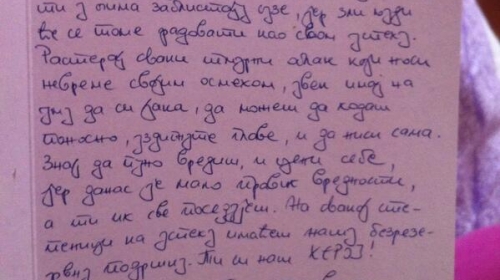 ти у очима заблистају сузе, јер зли људи
ће се томе радовати као свом успеху.
Растерај сваки тмурни облак који носи
невреме својим осмехом, увек имај на
уму да си јака, да можеш да ходаш
поносно, уздигнуте главе, и да ниси сама.
Знај да пуно вредиш, и цени себе,
јер данас је мало правих вредности,
а ти их све поседујеш. На свакој сте-
пеници ка успеху имаћеш нашу безрезе-
рвну подршку. Ти си наш ХЕРОЈ!